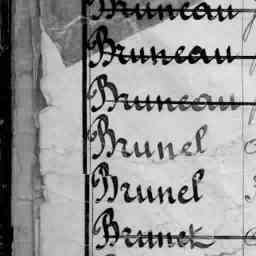 Bruneau
Bruneau
Bruneau
Brunel
Brunel
Brunet